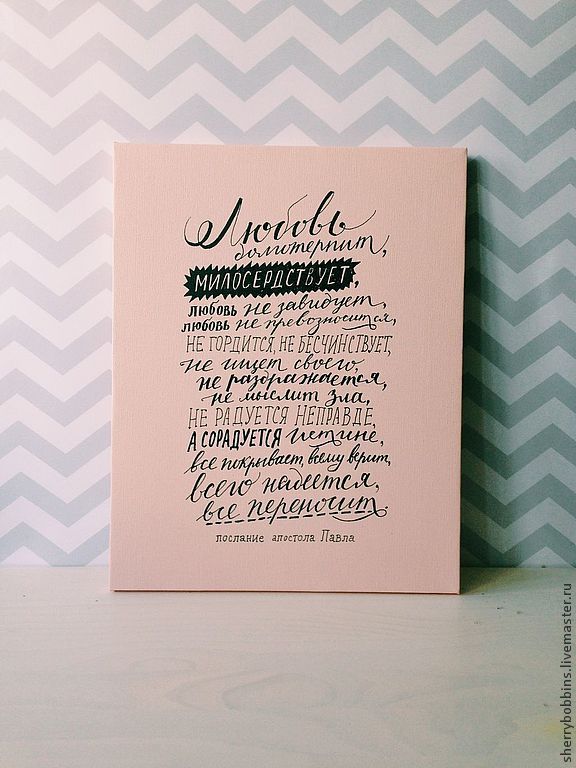 Любовь
долготерпит,
МИЛОСЕРДСТВУЕТ,
ЛЮБОВЬ не завидует,
ЛЮБОВЬ не превозносится,
НЕ ГОРДИТСЯ, НЕ БЕСЧИНСТВУЕТ,
не ищет своего,
не раздражается,
не мыслит зла,
НЕ РАДУЕТСЯ НЕПРАВДЕ,
А СОРАДУЕТСЯ истине,
все покрывает, всему верит,
всего надеется,
все переносит.
послание апостола Павла
sherrybobbins.livemaster.ru